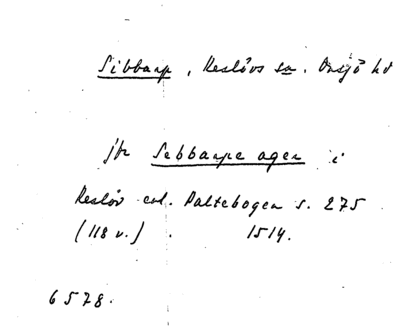 Sibbarp, Reslövs sn. Onsjö hd
jfr Sebbarpe ager i
Reslöv enl. Paltebogen s. 275
(118 v.). 1514.
6578.